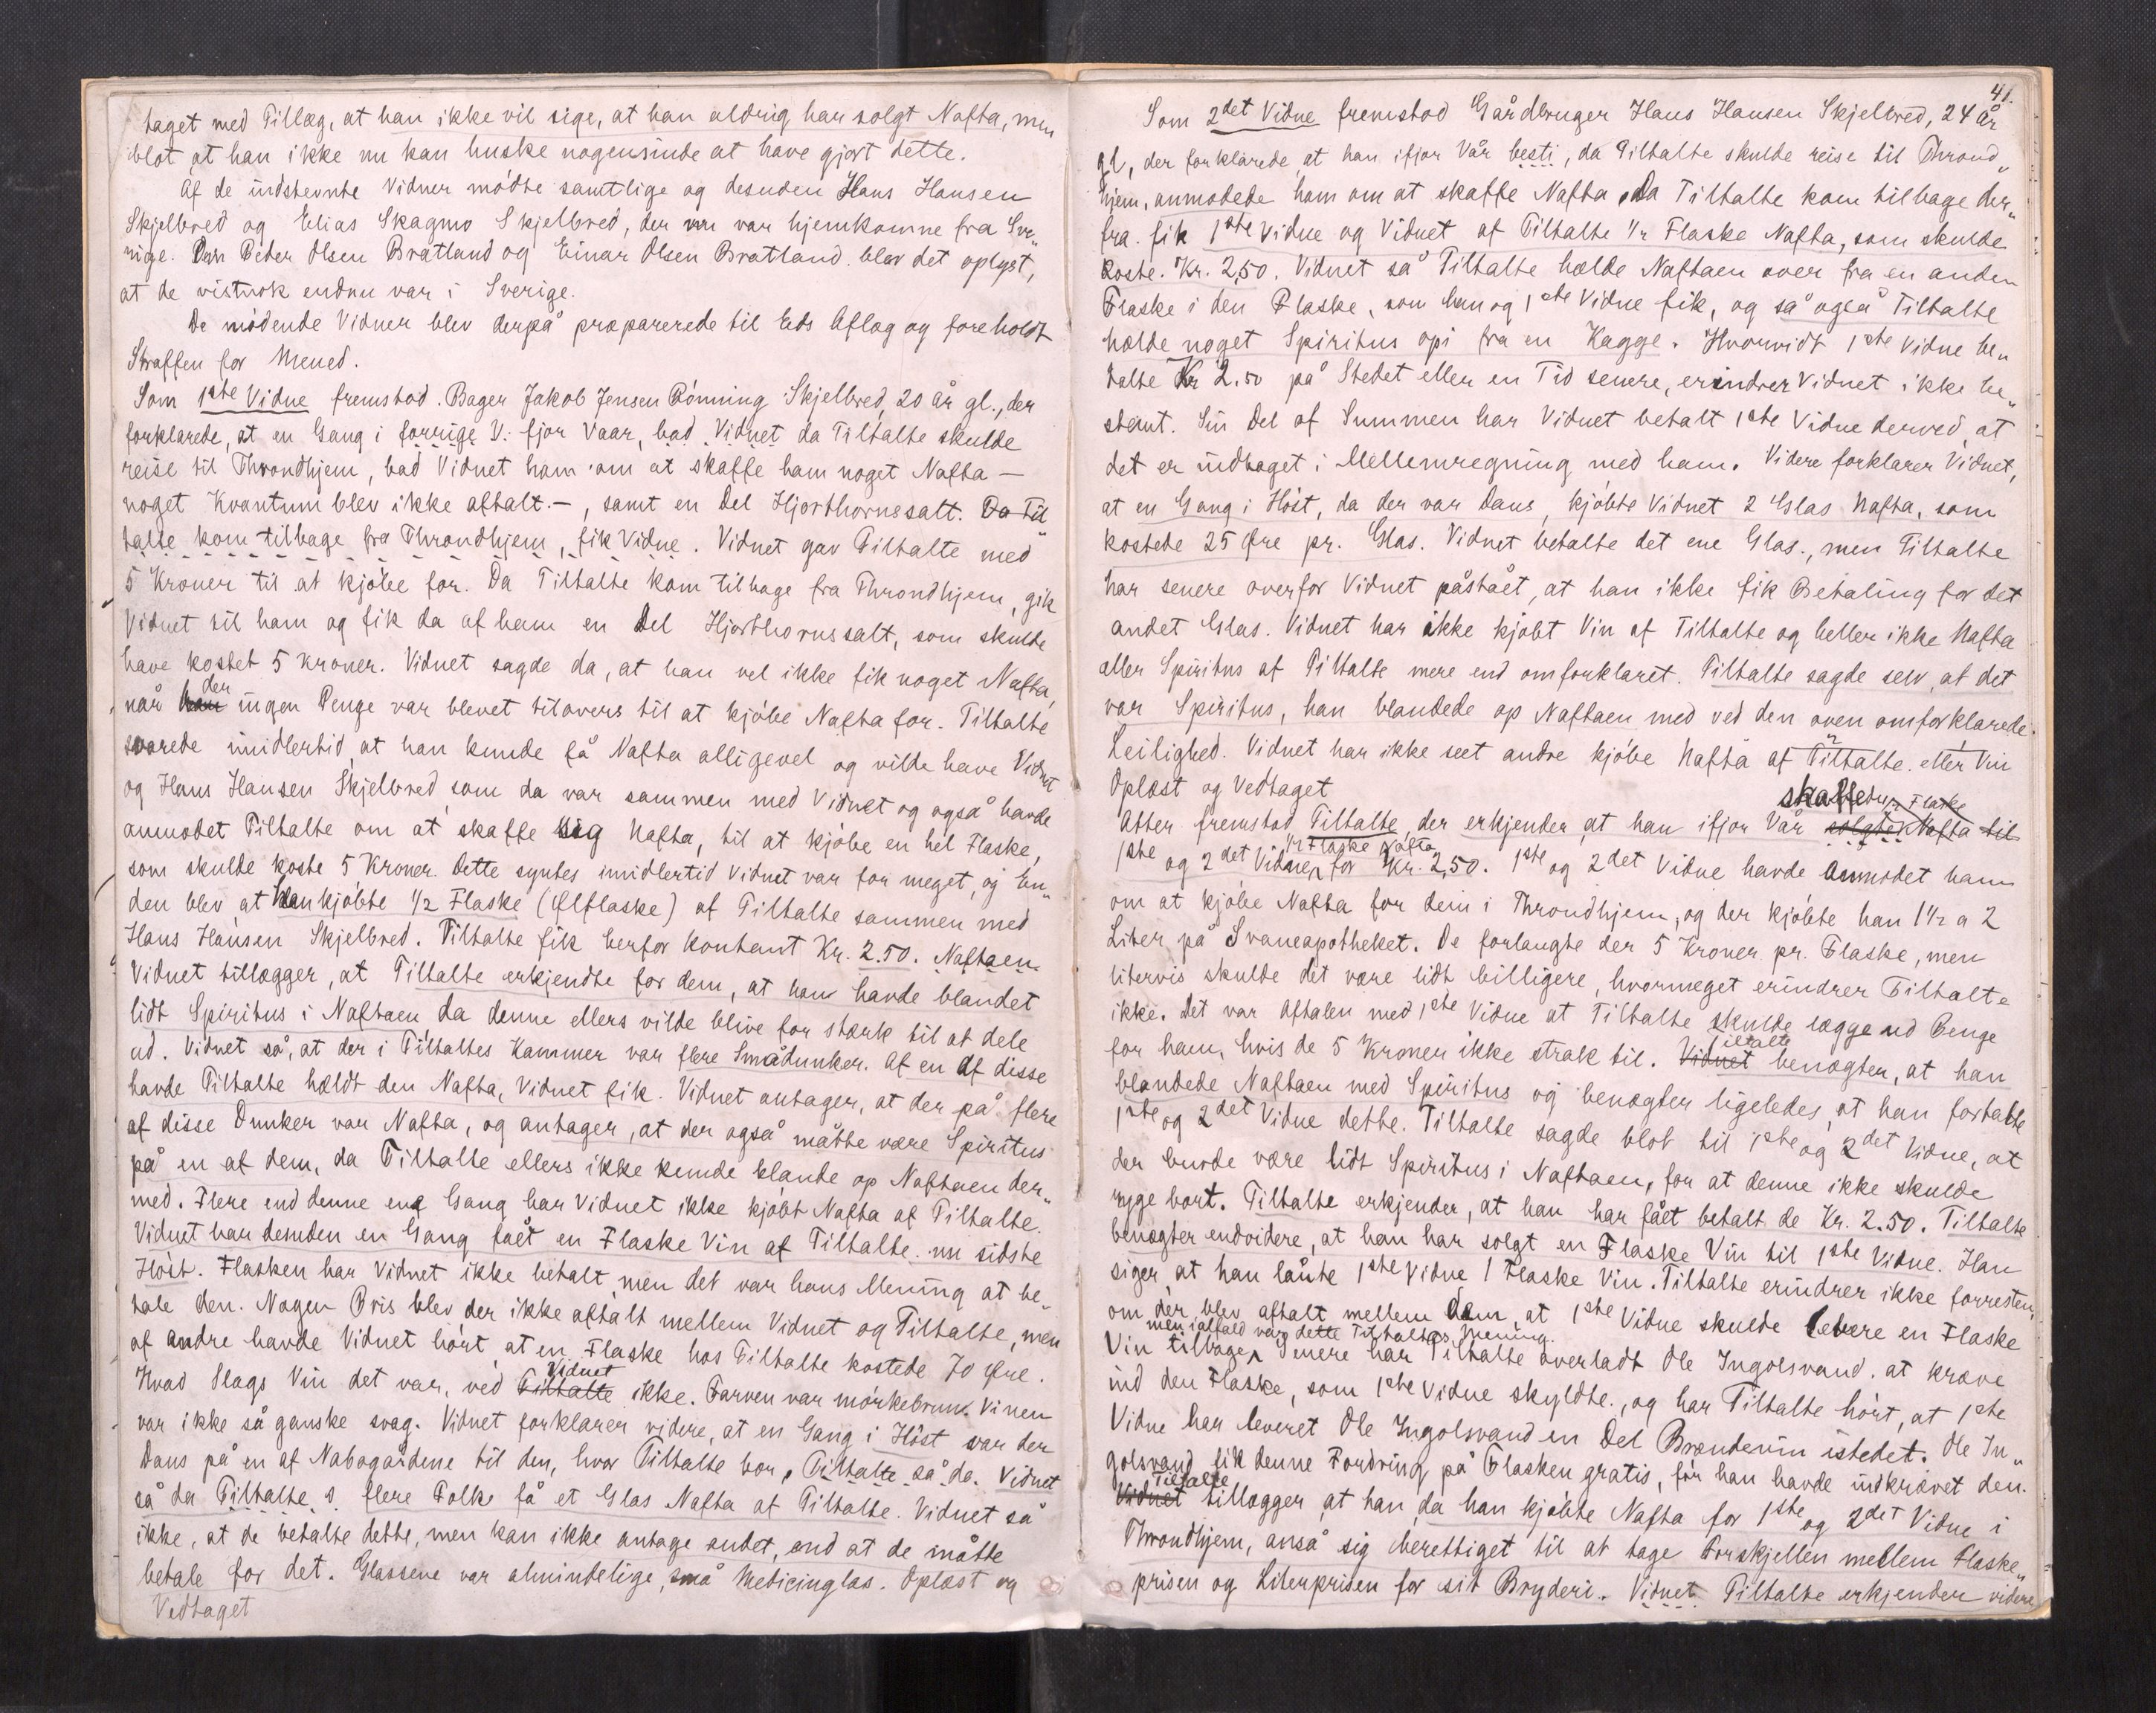 taget med Tillæg, at han ikke vil sige, at han aldrig har solgt Nafta, men
blot at han ikke nu kan huske nogensinde at have gjort dette.
Af de indstevnte Vidner mödte samtlige og desuden Hans Hansen
Skjelbred og Elias Skagmo Skjelbred, der nu var hjemkomne fra Sve„
rige. Om Peder Olsen Bratland og Einar Olsen Bratland blev det oplyst,
at de vistnok endnu var i Sverige.
De mödende Vidner blev derpå præparerede til Eds Aflæg og foreholdt
Straffen for Mened.
Som 1ste Vidne fremstod Bager Jakob Jensen Rönning Skjelbred, 20 år gl., der
forklarede, at en Gang i forrige V. fjor Vaar, bad Vidnet da Tiltalte skulde
reise til Throndhjem, bad Vidnet ham om at skaffe ham noget Nafta —
noget Kvantum blev ikke aftalt. —, samt en Del Hjorthornssalt. Da Til„
talte kom tilbage fra Throndhjem, fik Vidne. Vidnet gav Tiltalte med
5 Kroner til at kjöbe for. Da Tiltalte kom tilbage fra Throndhjem, gik
Vidnet til ham og fik da af ham en Del Hjorthornssalt, som skulde
have kostet 5 Kroner. Vidnet sagde da, at han vel ikke fik noget Nafta,
der
når han ingen Penge var blevet tilovers til at kjöbe Nafta for. Tiltalte
svarede imidlertid, at han kunde få Nafta alligevel og vilde have Vidnet
og Hans Hansen Skjelbred, som da var sammen med Vidnet og også havde
anmodet Tiltalte om at skaffe sig Nafta, til at kjöbe en hel Flaske,
som skulde koste 5 Kroner. Dette syntes imidlertid Vidnet var for meget, og En„
den blev, at han kjöbte 1/2 Flaske (Ølflaske) af Tiltalte sammen med
Hans Hansen Skjelbred. Tiltalte fik herfor kontant Kr. 2.50. Naftaen
Vidnet tillægger, at Tiltalte erkjendte for dem, at han havde blandet
lidt Spiritus i Naftaen da denne ellers vilde blive for stærk til at dele
ud. Vidnet så, at der i Tiltaltes Kammer var flere Smådunker. Af en af disse
havde Tiltalte hældt den Nafta, Vidnet fik. Vidnet antager, at der på flere
af disse Dunker var Nafta, og antager, at der også måtte være Spiritus
på en af dem, da Tiltalte ellers ikke kunde blande op Naftaen der„
med. Flere end denne ene Gang har Vidnet ikke kjöbt Nafta af Tiltalte.
Vidnet har desuden en Gang fået en Flaske Vin af Tiltalte nu sidste
Höst. Flasken har Vidnet ikke betalt, men det var hans Mening at be„
tale den. Nogen Pris blev der ikke aftalt mellem Vidnet og Tiltalte, men
af andre havde Vidnet hört, at en Flaske hos Tiltalte kostede 70 Øre.
Vidnet
Hvad Slags Vin det var, ved Tiltalte ikke. Farven var mörkebrun. Vinen
var ikke så ganske svag. Vidnet forklarer videre, at en Gang i Höst var der
Dans på en af Nabogårdene til den, hvor Tiltalte bor. Tiltalte så da. Vidnet
så da Tiltalte s. flere Folk få et Glas Nafta af Tiltalte. Vidnet så
ikke, at de betalte dette, men kan ikke antage andet, end at de måtte
betale for det. Glassene var almindelige, små Medicinglas. Oplæst og
Vedtaget
41.
Som 2det Vidne fremstod Gårdbruger Hans Hansen Skjelbred, 24 År
gl., der forklarede, at han ifjor Vår besti, da Tiltalte skulde reise til Thrond„
hjem, anmodede ham om at skaffe Nafta. Da Tiltalte kom tilbage der„
fra fik 1ste Vidne og Vidnet af Tiltalte 1/2 Flaske Nafta, som skulde
koste Kr. 2,50. Vidnet så Tiltalte hælde Naftaen over fra en anden
Flaske i den Flaske, som han og 1ste Vidne fik, og så også Tiltalte
hælde noget Spiritus opi fra en Kagge. Hvorvidt 1ste Vidne be„
talte Kr 2.50 på Stedet eller en Tid senere, erindrer Vidnet ikke be„
stemt. Sin Del af Summen har Vidnet betalt 1ste Vidne derved, at
det er indtaget i Mellemregning med ham. Videre forklarer Vidnet,
at en Gang i Höst, da der var Dans, kjöbte Vidnet 2 Glas Nafta, som
kostede 25 Øre pr. Glas. Vidnet betalte det ene Glas, men Tiltalte
har senere overfor Vidnet påstået, at han ikke fik Betaling for det
andet Glas. Vidnet har ikke kjöbt Vin af Tiltalte og heller ikke Nafta
eller Spiritus af Tiltalte mere end omforklaret. Tiltalte sagde selv, at det
var Spiritus, han blandede op Naftaen med ved den oven omforklarede
Leilighed. Vidnet har ikke seet andre kjöbe Nafta af Tiltalte eller Vin
Oplæst og Vedtaget
skaffede 1/2 Flaske
Atter fremstod Tiltalte, der erkjender, at han ifjor Vår solgte Nafta til
1/2 Flaske Nafta
1ste og 2det Vidne for Kr. 2,50. 1ste og 2det Vidne havde Anmodet ham
om at kjöbe Nafta for dem i Throndhjem, og der kjöbte han 1 1/2 a 2
Liter på Svaneapotheket. De forlangte der 5 Kroner pr. Flaske, men
litervis skulde det være lidt billigere, hvormeget erindrer Tiltalte
ikke. Det var Aftalen med 1ste Vidne at Tiltalte skulde lægge ud Penge
Tiltalte
for ham, hvis de 5 Kroner ikke strak til. Vidnet benægter, at han
blandede Naftaen med Spiritus og benægter ligeledes, at han fortalte
1ste og 2det Vidne dette. Tiltalte sagde blot til 1ste og 2det Vidne, at
der burde være lidt Spiritus i Naftaen, for at denne ikke skulde
ryge bort. Tiltalte erkjender, at han har fået betalt de Kr. 2.50. Tiltalte
benægter endvidere, at han har solgt en Flaske Vin til 1ste Vidne. Han
siger, at han lånte 1ste Vidne 1 Flaske Vin. Tiltalte erindrer ikke forresten,
om der blev aftalt mellem dem, at 1ste Vidne skulde levere en Flaske
men ialfald var dette Tiltaltes Mening.
Vin tilbage, Senere har Tiltalte overladt Ole Ingolsvand at kræve
ind den Flaske, som 1ste Vidne skyldte, og har Tiltalte hört, at 1ste
Vidne har leveret Ole Ingolsvand en Del Brændevin istedet. Ole In„
golsvand fik denne Fordring på Flasken gratis, för han havde indkrævet den.
Tiltalte
Vidnet tillægger, at han, da han kjöbte Nafta for 1ste og 2det Vidne i
Throndhjem, anså sig berettiget til at tage Forskjellen mellem Flaske„
prisen og Literprisen for sit Bryderi. Vidnet Tiltalte erkjender videre